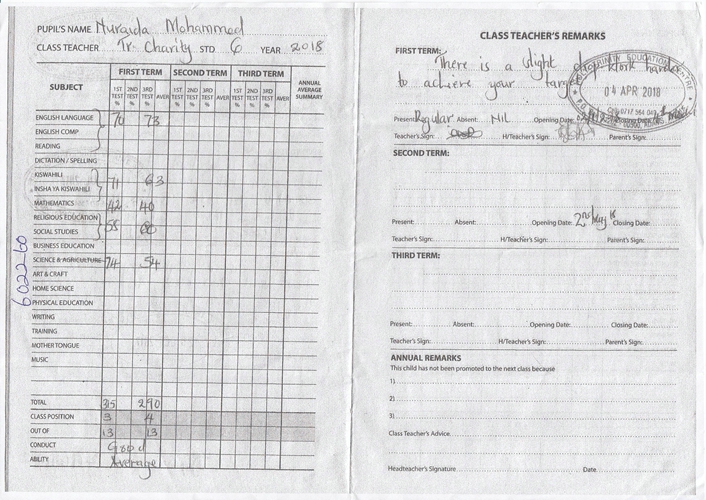 PUPIL'S NAME Nuraida Mohammed
CLASS TEACHER Tr. Charity STD 6 YEAR 2018
SUBJECT
FIRST TERM SECOND TERM THIRD TERM ANNUAL AVERAGE SUMMARY
1ST TEST % 2ND TEST % 3RD TEST % AVER 1ST TEST % 2ND TEST % 3RD TEST % AVER 1ST TEST % 2ND TEST % 3RD TEST % AVER
ENGLISH LANGUAGE 70 73
ENGLISH COMP
READING
DICTATION / SPELLING
KISWAHILI
INSHA YA KISWAHILI 71 63
MATHEMATICS 42 40
RELIGIOUS EDUCATION
SOCIAL STUDIES 58 60
BUSINESS EDUCATION
SCIENCE & AGRICULTURE 74 54
ART & CRAFT
HOME SCIENCE
PHYSICAL EDUCATION
WRITING
TRAINING
MOTHER TONGUE
MUSIC
TOTAL 315 290
CLASS POSITION 3 4
OUT OF 13 13
CONDUCT Good
ABILITY Average
6022-60
CLASS TEACHER'S REMARKS
FIRST TERM:
There is a slight drop. Work harder
to achieve your target
EDUCATION CENTRE
04 APR 2018
Present: Regular Absent: NIL Opening Date: Closing Date:
Teacher's Sign: H/Teacher's Sign: Parent's Sign:
SECOND TERM:
Present: Absent: Opening Date: 2nd May 18 Closing Date:
Teacher's Sign: H/Teacher's Sign: Parent's Sign:
THIRD TERM:
Present: Absent: Opening Date: Closing Date:
Teacher's Sign: H/Teacher's Sign: Parent's Sign:
ANNUAL REMARKS
This child has not been promoted to the next class because
1)
2)
3)
Class Teacher's Advice.
Headteacher's Signature Date